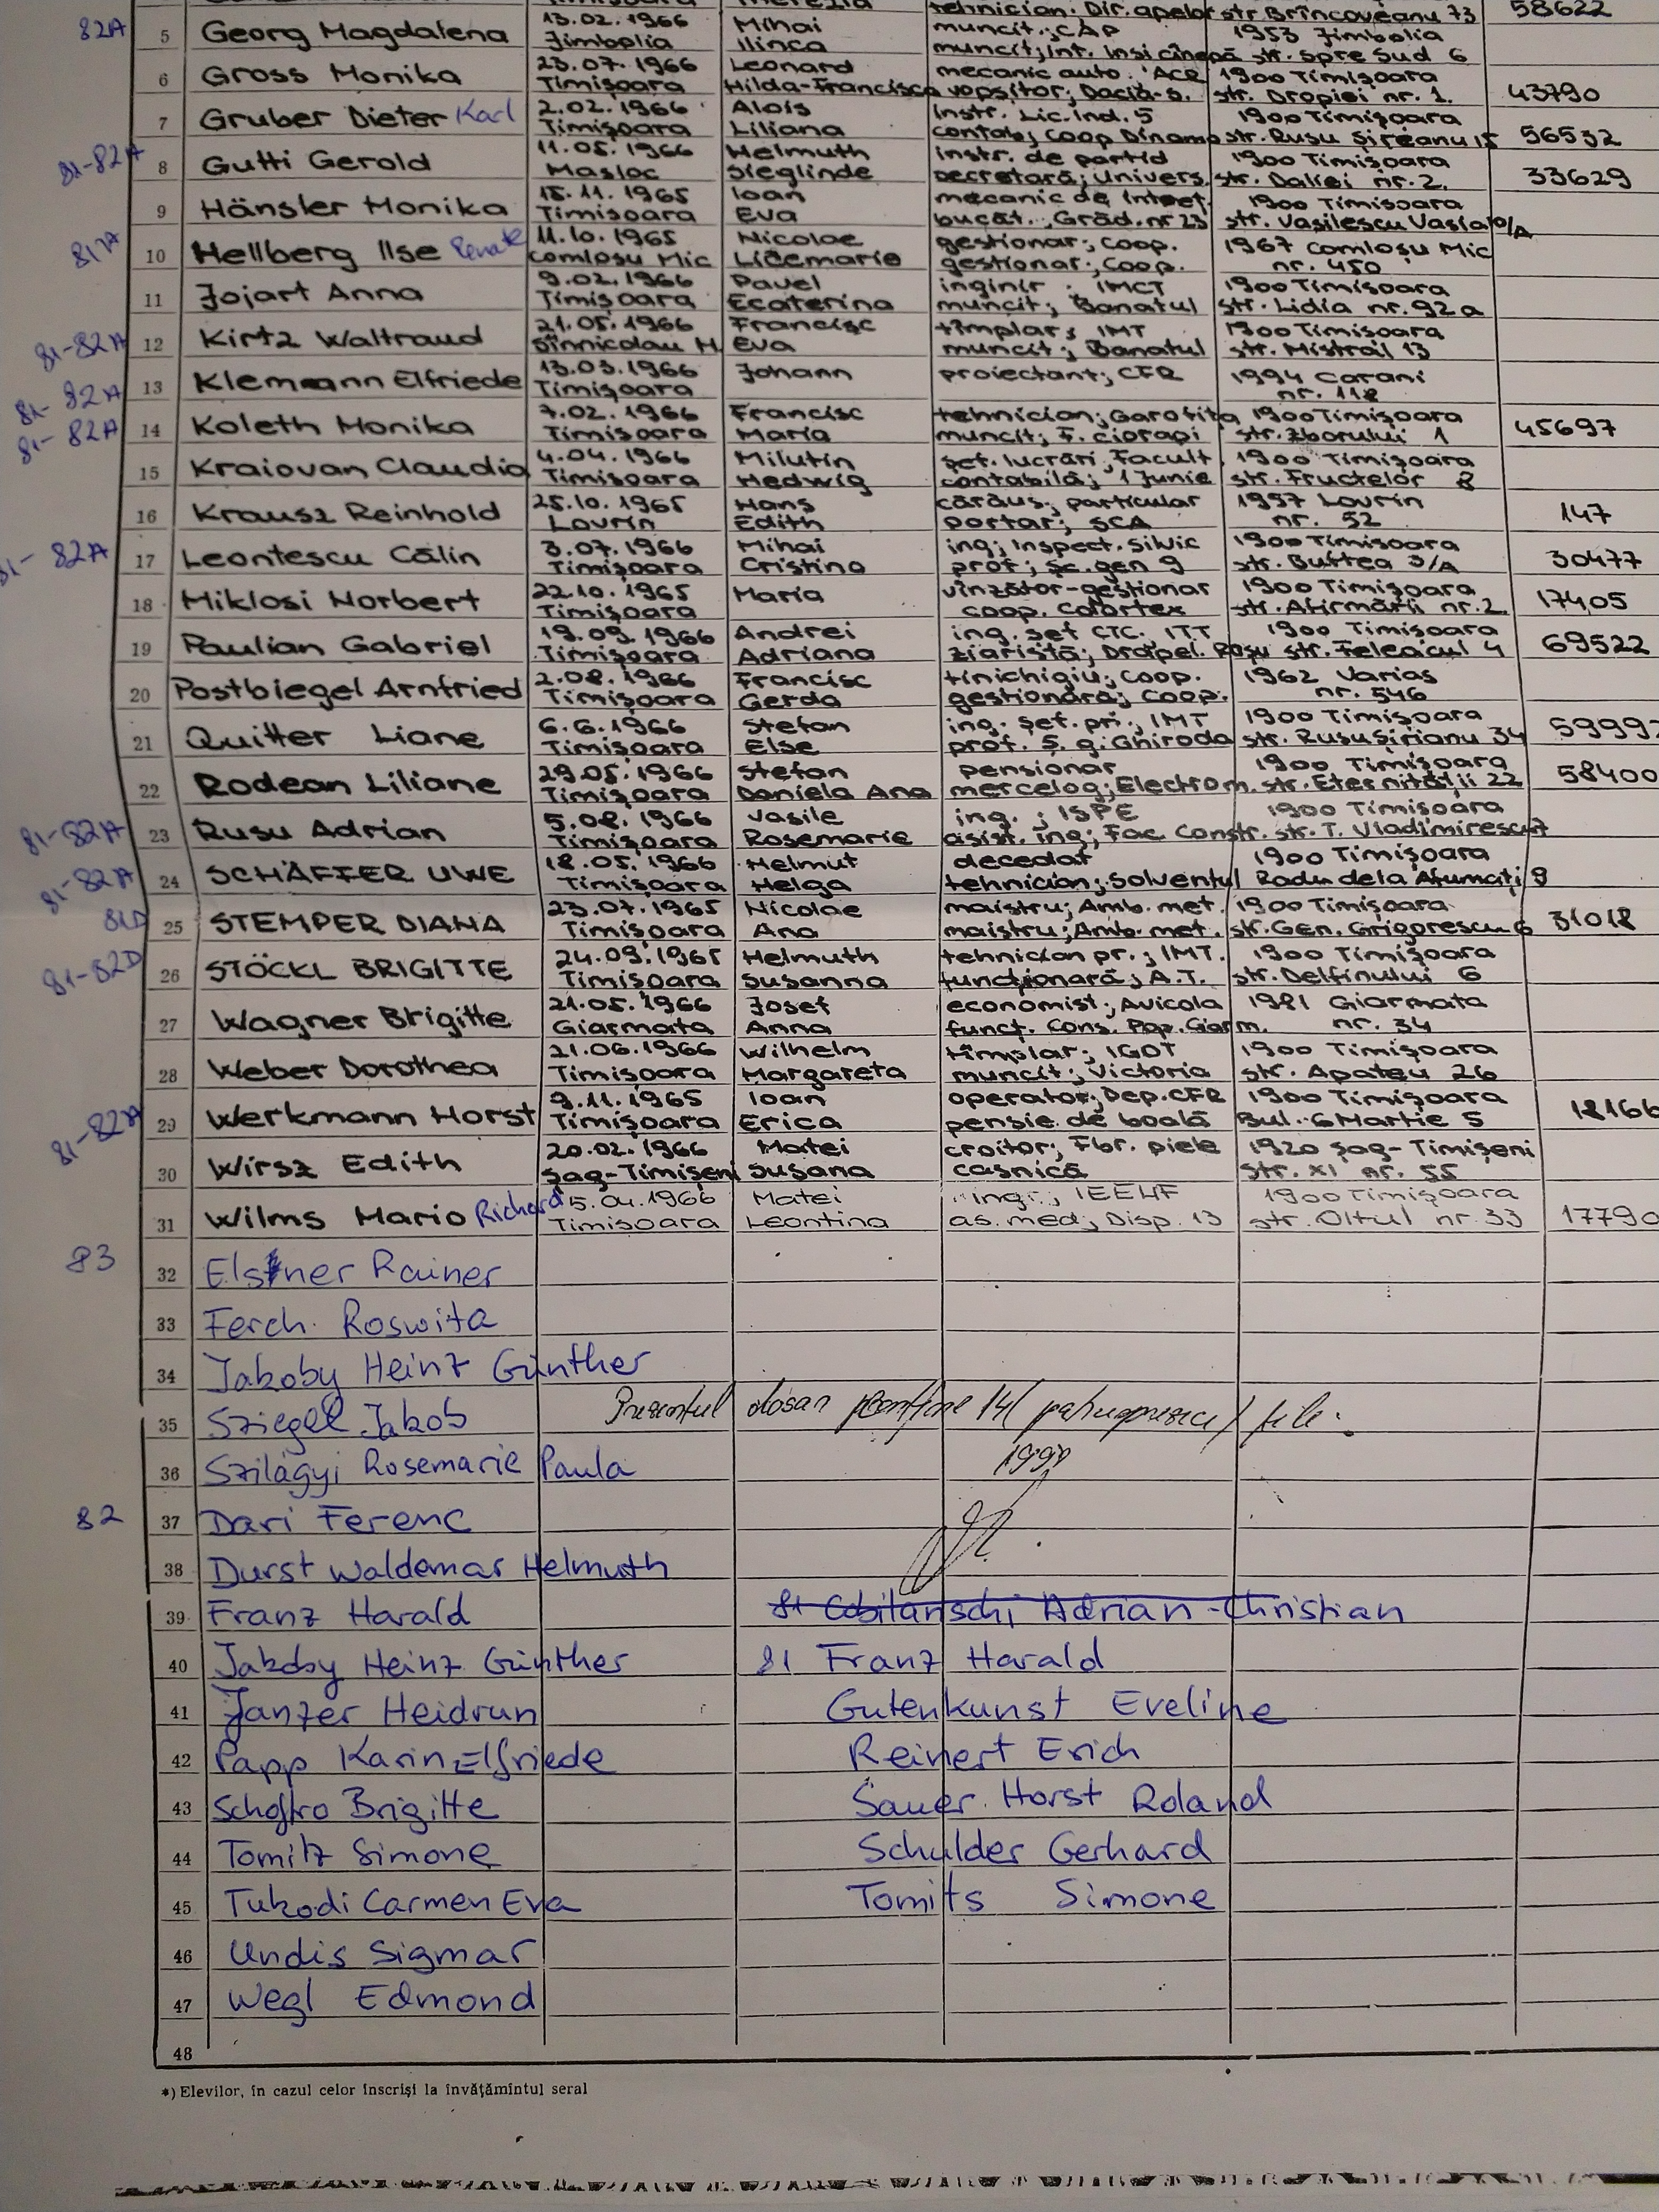 tehnician; Dir. apelor str Brîncoveanu 73 58622
82A 5 Georg Magdalena 13.02.1966 Mihai muncit.; CAP 1953 Jimbolia
Jimbolia Ilinca muncit; Int. Insi cînepă str. Spre Sud 6
6 Gross Monika 23.07.1966 Leonard mecanic auto. ACR 1900 Timişoara
Timişoara Hilda-Francisca vopsitor; Dacia-S. str. Dropiei nr. 1. 43790
7 Gruber Dieter Karl 2.02.1966 Alois Instr. Lic. Ind. 5 1900 Timişoara
Timişoara Liliana contab; Coop Dinamo str. Rusu Şireanu 15 56532
81-82A 8 Gutti Gerold 11.05.1966 Helmuth instr. de partid 1900 Timişoara
Masloc Sieglinde secretară; Univers. str. Daliei nr. 2. 33629
9 Hänsler Monika 15.11.1965 Ioan mecanic de întreţ. 1900 Timişoara
Timişoara Eva bucăt.; Grăd. nr 23 str. Vasilescu Vasia
81A 10 Hellberg Ilse Renate 11.10.1965 Nicolae gestionar; Coop. 1967 Comloşu Mic
Comloşu Mic Licemarie gestionar; Coop. nr. 450
11 Jojart Anna 9.02.1966 Pavel inginir; IMCT 1900 Timişoara
Timişoara Ecaterina muncit; Banatul str. Lidia nr. 92 a
81-82A 12 Kirtz Waltraud 21.05.1966 Francisc tîmplar; IMT 1900 Timişoara
Sînnicolau M. Eva muncit; Banatul str. Mistrail 13
81-82A 13 Klemann Elfriede 13.03.1966 Johann proiectant; CFR 1994 Carani
Timişoara nr. 118
81-82A 14 Koleth Monika 7.02.1966 Francisc tehnician; Garofiţa 1900 Timişoara
Timişoara Maria muncit; F. ciorapi str. Zborului 1 45697
15 Kraiovan Claudia 4.04.1966 Milutin şef. lucrări, Facult. 1900 Timişoara
Timişoara Hedwig contabilă; 1 Junie str. Fructelor 8
16 Krausz Reinhold 25.10.1965 Hans cărăuş; particular 1957 Lovrin
Lovrin Edith portar; SCA nr. 52 147
81-82A 17 Leontescu Călin 3.07.1966 Mihai ing; Inspect. Silvic 1900 Timişoara
Timişoara Cristina prof; Şc. gen 9 str. Buftea 3/A 30477
18 Miklosi Norbert 22.10.1965 Maria vînzător-gestionar 1900 Timişoara
Timişoara coop. Colortex str. Afirmării nr. 2 17405
19 Paulian Gabriel 19.09.1966 Andrei ing. şef CTC, ITT 1900 Timişoara
Timişoara Adriana ziaristă; Drapel. Roşu str. Feleacul 4 69522
20 Postbiegel Arnfried 2.08.1966 Francisc tinichigiu; coop. 1962 Varias
Timişoara Gerda gestionară; coop. nr. 546
21 Quitter Liane 6.6.1966 Stefan ing. şef. pr.; IMT 1900 Timişoara
Timişoara Else prof. Ş. g. Ghiroda str. Rusu Şirianu 34 5999
22 Rodean Liliane 29.05.1966 Stefan pensionar 1900 Timişoara
Timişoara Daniela Ana mercelog; Electrom. str. Eternităţii 22 58400
81-82A 23 Rusu Adrian 5.08.1966 Vasile ing.; ISPE 1900 Timişoara
Timişoara Rosemarie asist. ing; Fac. Constr. str. T. Vladimirescu
81-82A 24 SCHÄFFER UWE 18.05.1966 Helmut decedat 1900 Timişoara
Timişoara Helga tehnician; Solventul Radu dela Afumaţi 9
81D 25 STEMPER DIANA 23.07.1965 Nicolae maistru; Amb. met. 1900 Timişoara
Timişoara Ana maistru; Amb. met. str. Gen. Grigorescu 6 31018
81-82D 26 STÖCKL BRIGITTE 24.09.1965 Helmuth tehnician pr.; IMT. 1900 Timişoara
Timişoara Susanna funcţionară; A.T. str. Delfinului 6
27 Wagner Brigitte 21.05.1966 Josef economist; Avicola 1981 Giarmata
Giarmata Anna funcţ. Cons. Pop. Giarm. nr. 34
28 Weber Dorothea 21.06.1966 Wilhelm tîmplar; IGOT 1900 Timişoara
Timişoara Margareta muncit; Victoria str. Apateu 26
81-82A 29 Werkmann Horst 9.11.1965 Ioan operator; Dep. CFR 1900 Timişoara
Timişoara Erica pensie de boală Bul. 6 Martie 5 18166
30 Wirsz Edith 20.02.1966 Matei croitor; Fbr. piele 1920 Şag-Timişeni
Şag-Timişeni Susana casnică str. XI nr. 55
31 Wilms Mario Richard 5.04.1966 Matei ing.; IEELIF 1900 Timişoara
Timişoara Leontina as. med; Disp. 13 str. Oltul nr. 33 17790
83 32 Elsner Rainer
33 Ferch Roswita
34 Jakoby Heinz Günther
35 Sziegel Jakob Prezentul dosar conţine 14 (patrusprezece) file.
36 Szilágyi Rosemarie Paula 1999
82 37 Dari Ferenc
38 Durst Waldemar Helmuth
39 Franz Harald 81 Cobilanschi Adrian-Christian
40 Jakoby Heinz Günther 81 Franz Harald
41 Janzer Heidrun Gutenkunst Eveline
42 Papp Karin Elfriede Reinert Erich
43 Brigitte Sauer Horst Roland
44 Tomitz Simone Schulder Gerhard
45 Tukodi Carmen Eva Tomits Simone
46 Undis Sigmar
47 Wegl Edmond
48
*) Elevilor, în cazul celor înscrişi la învăţămîntul seral